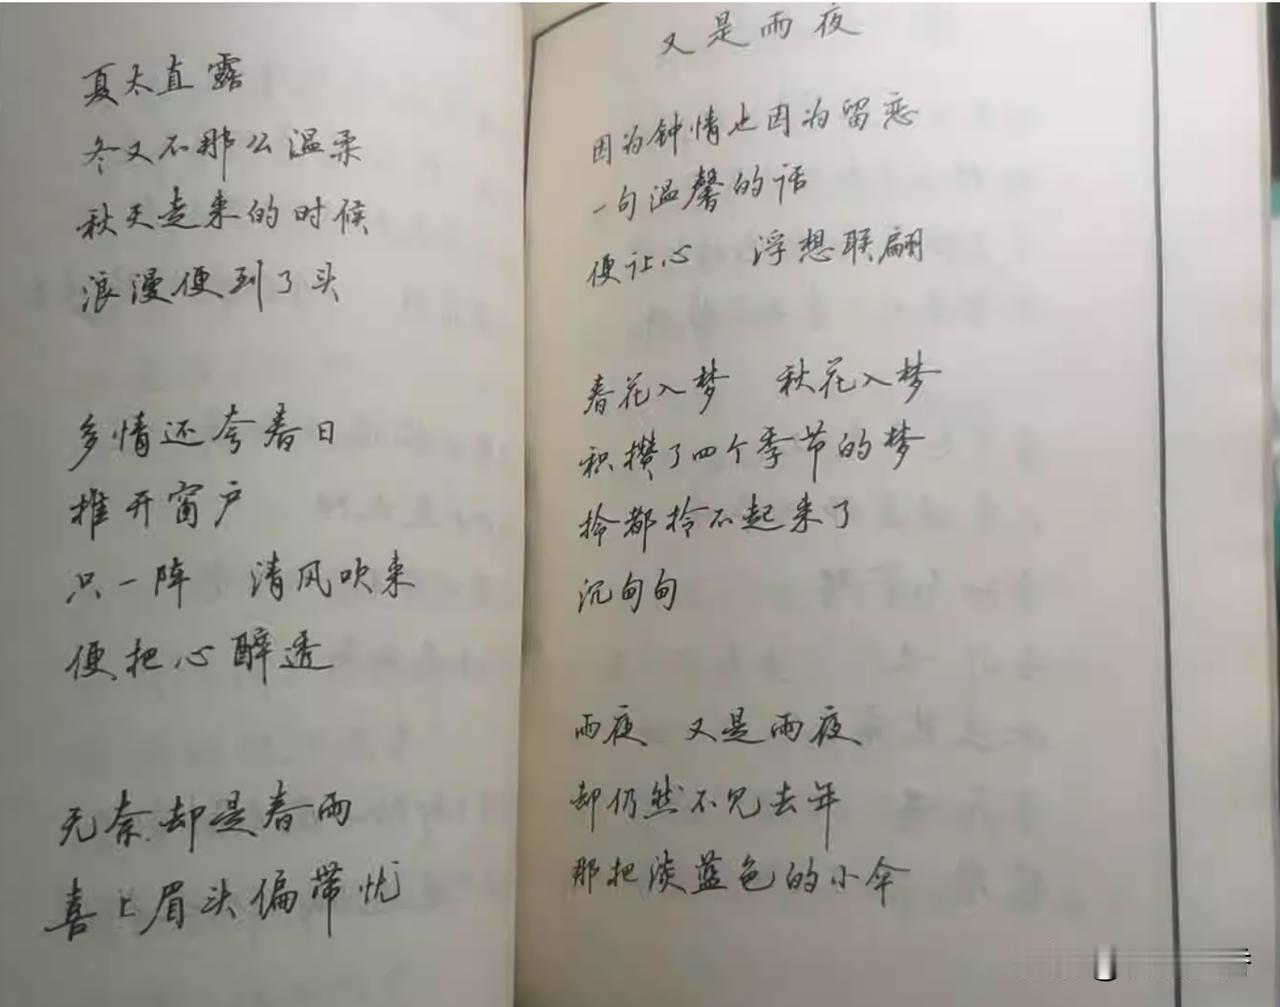 夏太直露
冬又不那么温柔
秋天走来的时候
浪漫便到了头
多情还夸春日
推开窗户
只一阵 清风吹来
便把心醉透
无奈却是春雨
喜上眉头偏带忧
又是雨夜
因为钟情也因为留恋
一句温馨的话
便让心 浮想联翩
春花入梦 秋花入梦
积攒了四个季节的梦
拎都拎不起来了
沉甸甸
雨夜 又是雨夜
却仍然不见去年
那把淡蓝色的小伞